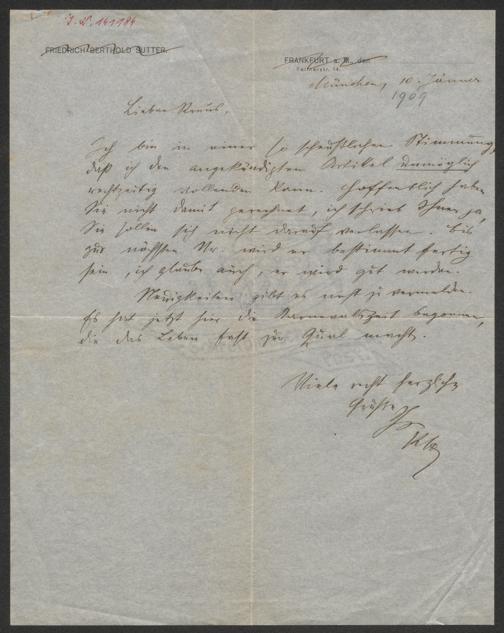 I. N. 161184
FRIEDRICH BERTHOLD SUTTER.
FRANKFURT a. M. den
München, 10. Jänner
1909
Lieber Kraus,
ich bin in einer so scheußlichen Stimmung,
daß ich den angekündigten Artikel unmöglich
rechtzeitig vollenden kann. Hoffentlich haben
Sie nicht damit gerechnet, ich schrieb Ihnen ja,
Sie sollen sich nicht darauf verlassen. Bis
zur nächsten Nr. wird er bestimmt fertig
sein, ich glaube auch, er wird gut werden.
Neuigkeiten gibt es nicht zu vermelden.
Es hat jetzt hier die Karnevalszeit begonnen,
die das Leben fast zur Qual macht.
Viele recht herzliche
Grüße